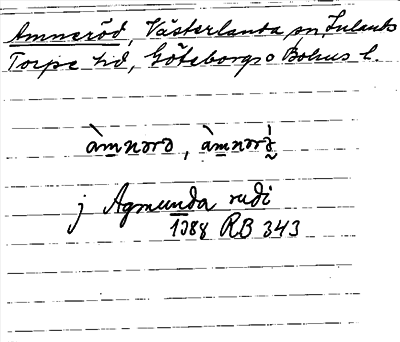 Amneröd, Västerlanda sn, Inlands
Torpe hd, Göteborgs o Bohus l.
àmnord, àmnorḍ
j Agmunda rudi
1388 RB 343